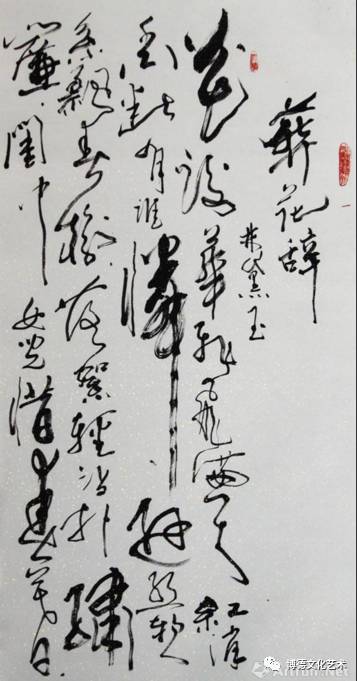 葬花辞
林黛玉
花谢華飛飛满天红消
香断有谁憐游丝软
系飘春榭落絮轻沾扑繡
簾闺中女兒惜春暮
博德文化艺术
Artron.Net